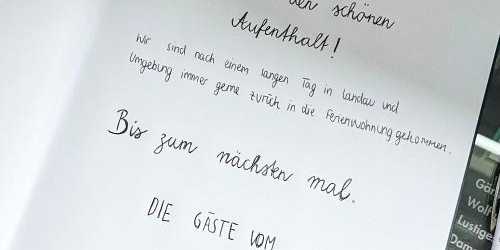 den schönen
Aufenthalt!
Wir sind nach einem langen Tag in Landau und
Umgebung immer gerne zurück in die Ferienwohnung gekommen.
Bis zum nächsten mal.
DIE GÄSTE VOM
Gär
Wolf
Lustige
Dam